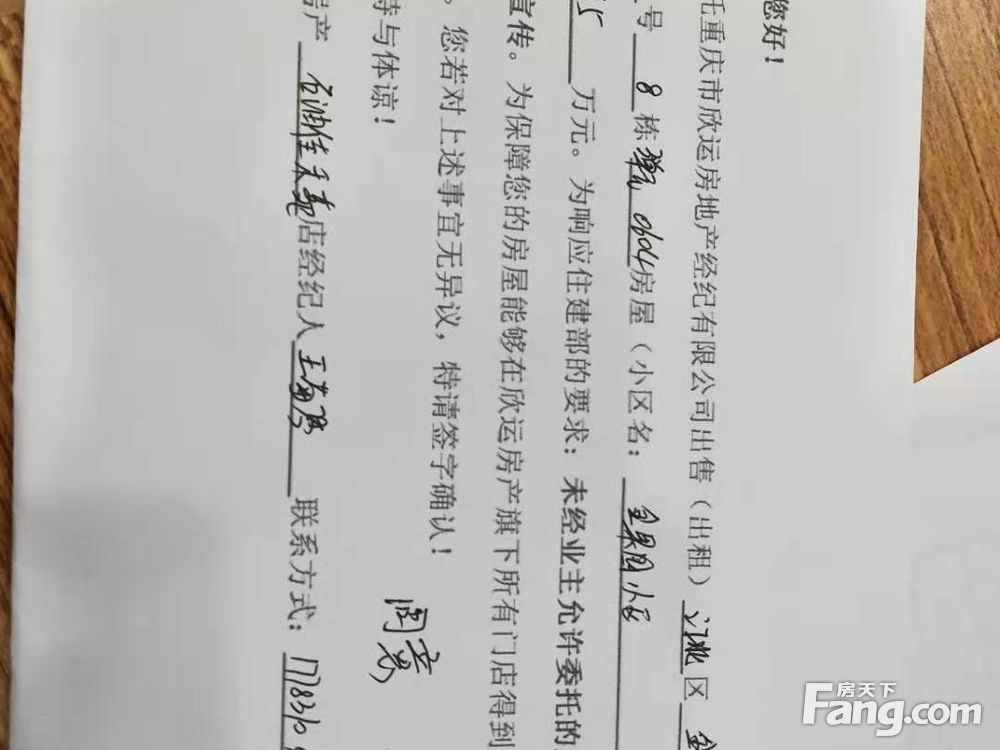 您好！
托重庆市欣运房地产经纪有限公司出售（出租）江北区
号 8 栋 0604房屋（小区名：金果园小区
5 万元。为响应住建部的要求：未经业主允许委托的
宣传。为保障您的房屋能够在欣运房产旗下所有门店得到
。您若对上述事宜无异议，特请签字确认！
持与体谅！
房产 石油佳 店经纪人 王 联系方式：1778310
房天下
Fang.com